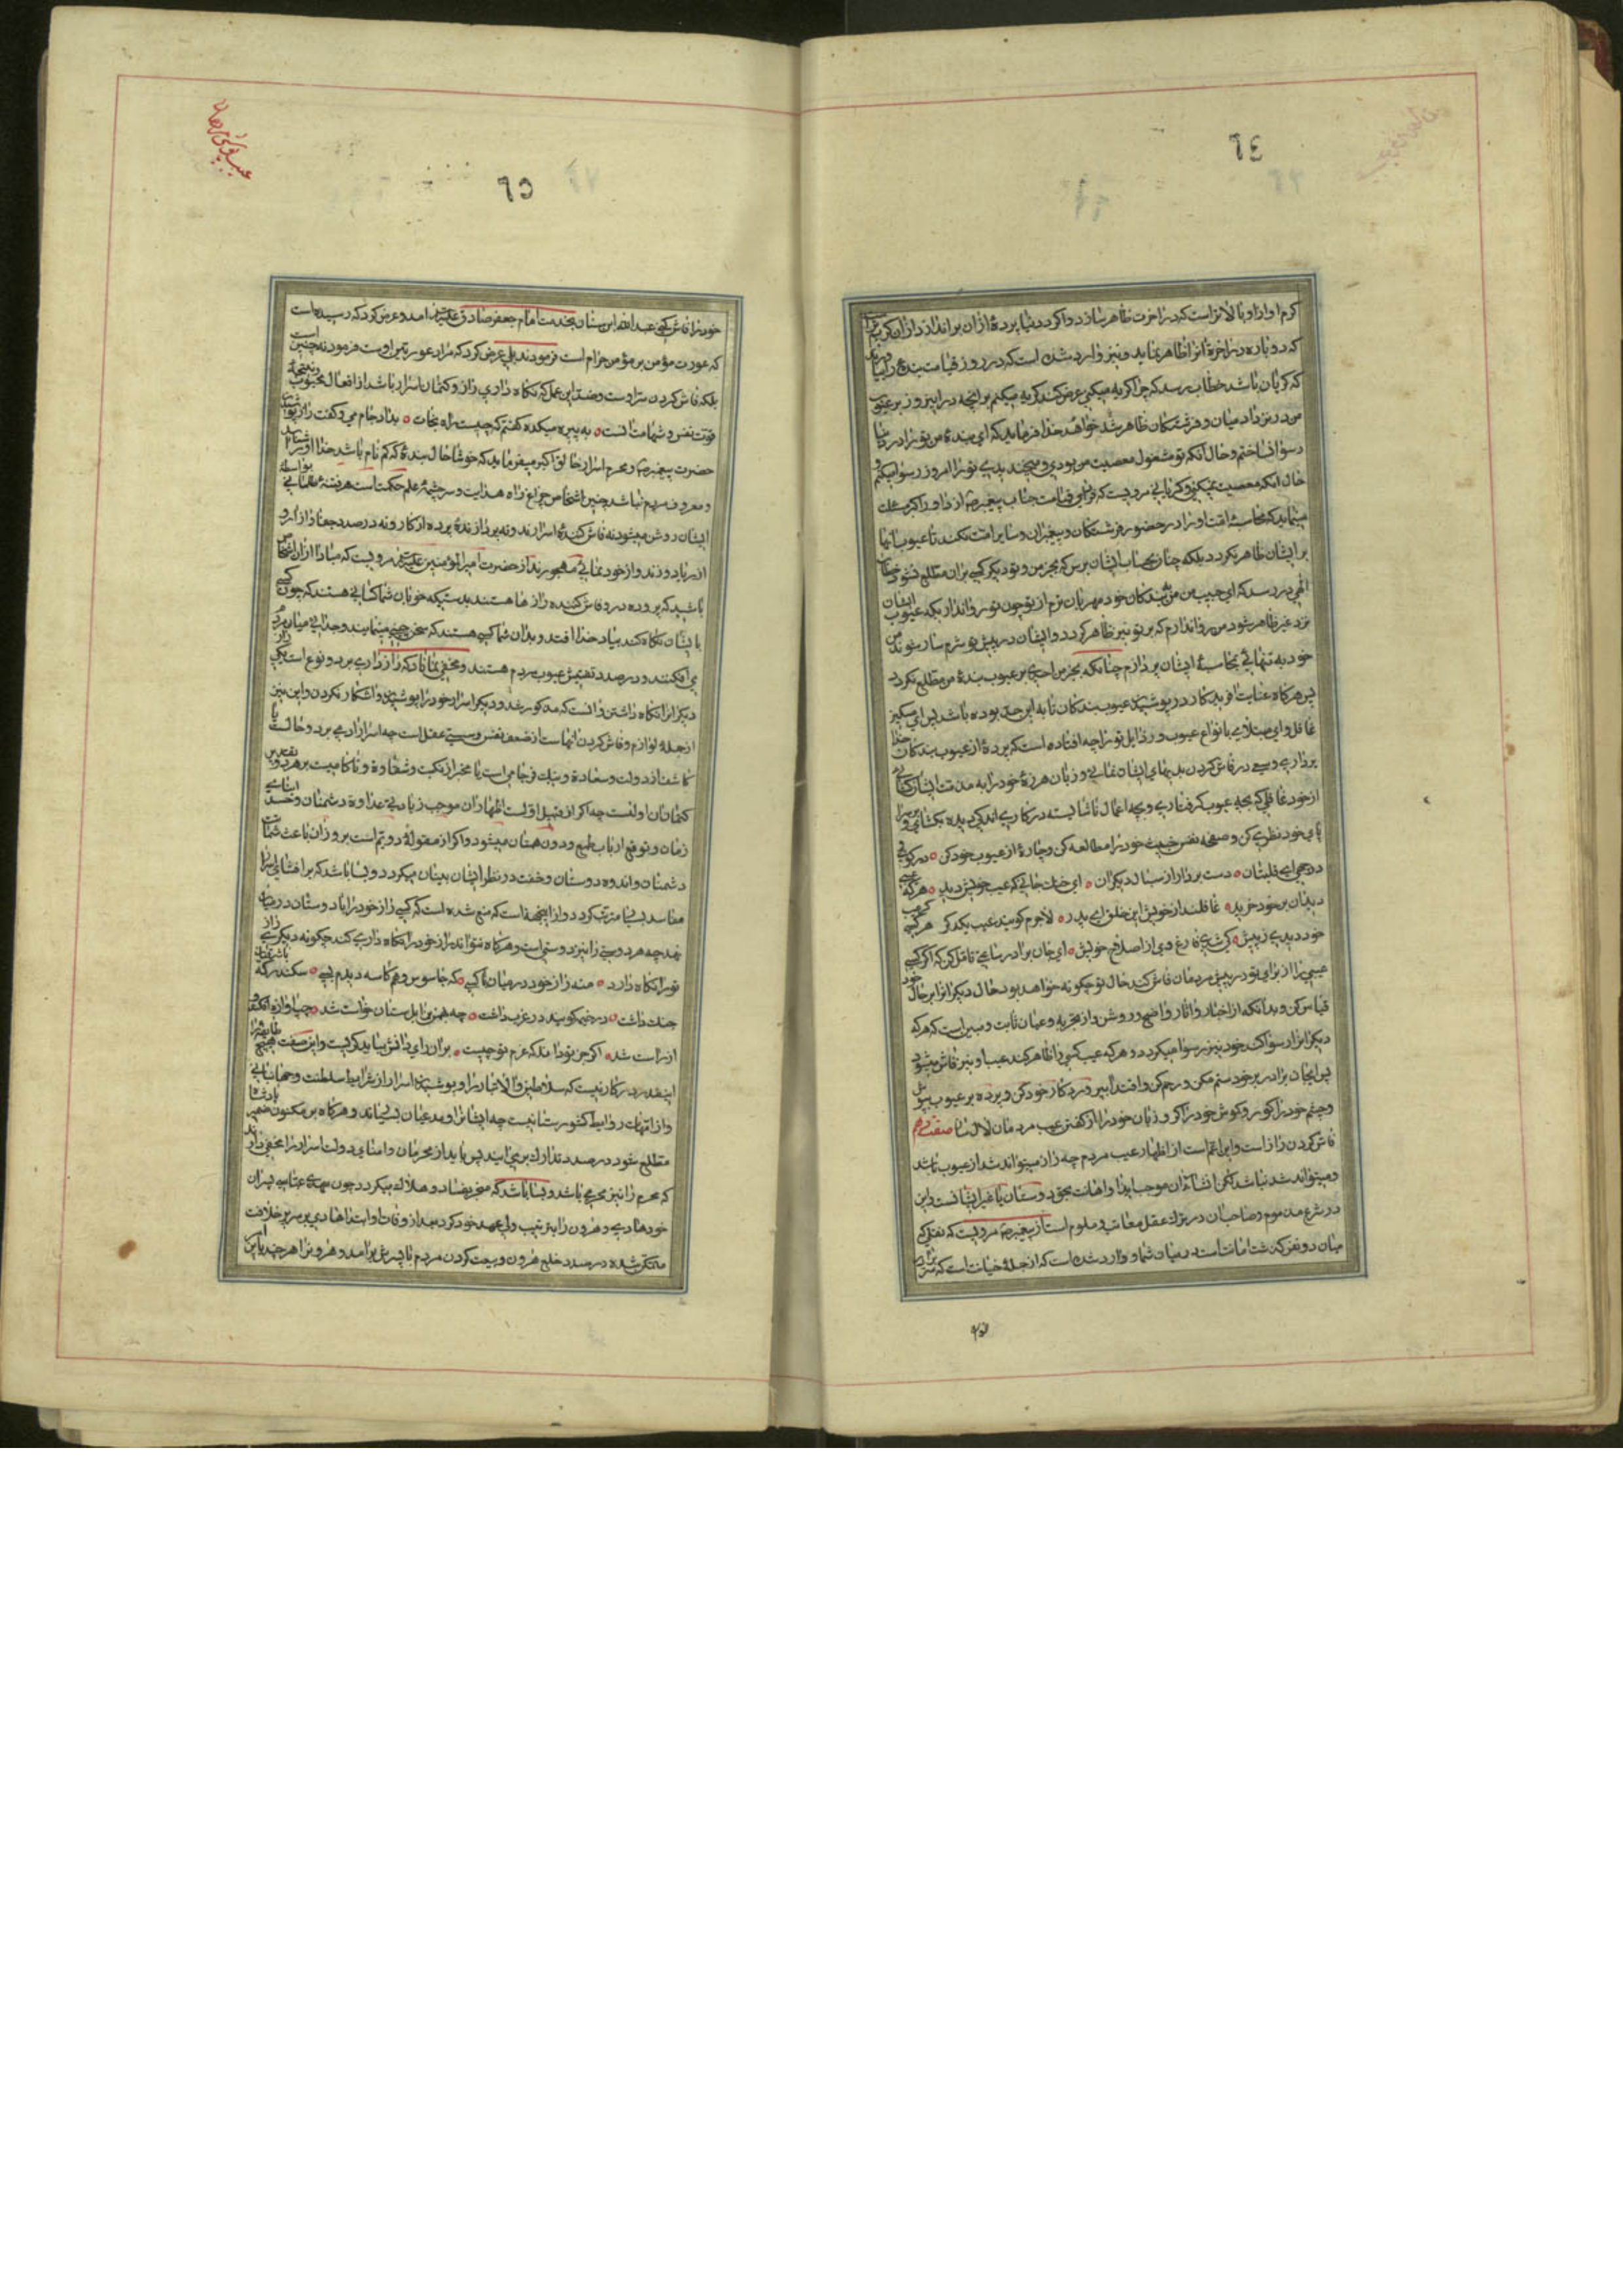 ٦٤
کرم او از او بالاتر است که در آخرت ظاهر سازد و اگر در دنیا پردهٔ از آن براندازد از آن کریمتر است
که دوباره در آخرة آنرا ظاهر نماید و نیز وارد شده است که در روز قیامت بندهٔ را بیاورند
که گریان باشد خطاب رسد که چرا گریه میکنی عرض کند گریه میکنم بر آنچه در این روز بر عیوب
من در نزد آدمیان و فرشتگان ظاهر شد خواهد خدا فرماید که ای بندهٔ من تو را در دنیا
رسوا نساختم و حال آنکه تو مشغول معصیت من بودی و میخندیدی تو را امروز رسوا میکنم و
حال آنکه معصیت نمیکنی و گریانی مرویست که فردای قیامت جناب پیغمبر ص از داور اکبر مسئلت
مینماید که محاسبهٔ امت او را در حضور فرشتگان و پیغمبران و سایر امت نکند تا عیوب آنها
بر ایشان ظاهر نگردد بلکه چنان بحساب ایشان برس که بجز من و تو دیگر کسی بر آن مطلع نشود خطاب
الهی در رسد که ای حبیب من من به بندگان خود مهربان ترم از تو چون تو روا نداری که عیوب ایشان
نزد غیر ظاهر شود من روا ندارم که بر تو نیز ظاهر گردد و ایشان در پیش تو شرمسار شوند من
خود به تنهائی بمحاسبهٔ ایشان پردازم چنانکه بجز من احدی بر عیوب بندهٔ من مطلع نگردد
پس هرگاه عنایت آفریدگار در پوشیدن عیوب بندگان تا به این حد بوده باشد پس ای مسکین
غافل و ای مبتلای بانواع عیوب و رذایل تو را چه افتاده است که پردهٔ از عیوب بندگان خدا
برداری و سعی در فاش کردن بدیهای ایشان نمائی و زبان هرزهٔ خود را به مذمت ایشان گشائی
از خود غافلی که بچه عیوب گرفتاری و بچه اعمال ناشایسته در کاری اندکی دیده بگشای و سراپای
پای خود نظری کن و صفحه نفس خبیث خود را مطالعه کن و چارهٔ از عیوب خود کن ه در گوئی
دست بردار از سبال دیگران ه ای خنک جانی که عیب خویش دید ه هر که عیبی
دیدآن بر خود خرید ه غافلند از خویش این خلق ای پدر ه لاجرم گویند عیب یکدگر هر کسی گر عیب
خود دیدی ز پیش ه کی شدی فارغ وی از اصلاح خویش ه ای جان برادر ساعتی تامل کن که اگر کسی
عیبی را از برای تو در پیش مردمان فاش کند حال تو چگونه خواهد بود حال دیگران را بر حال خود
قیاس کن و بدانکه از اخبار و آثار واضح و روشن و از تجربه و عیان ثابت و مبین است که هر که
دیگران را رسوا کند خود نیز رسوا میگردد و هر که عیب کسی را ظاهر کند عیب او نیز فاش میشود
پس ای جان برادر بر خود ستم مکن و رحم کن و اقتدا بپروردگار خود کن و پرده بر عیوب بپوش
و چشم خود را کور و گوش خود را کر و زبان خود را از گفتن عیب مردمان لال نما صفت
فاش کردن راز است و این اعم است از اظهار عیب مردم چه راز میتواند شد از عیوب باشد
و میتواند شد نباشد لکن افشاء آن موجب ایذا و اهانت بحق دوستان یا غیر ایشانست و این
در شرع مذموم و صاحب آن در نزد عقل معاتب و ملوم است از پیغمبر ص مرویست که
میان دو نفر گذشت امانت است در میان شما و وارد شده است که از جملهٔ خیانت است که
٦٥
عیب پوشی
خود را فاش کنی عبدالله ابن سنان بخدمت امام جعفر صادق علیه السلام آمد و عرض کرد که رسیده است
که عورت مؤمن بر مؤمن حرام است فرمودند بلی عرض کرد که مراد عورتین اوست فرمود نه چنین است
بلکه فاش کردن سر اوست و ضد این عمل که نگاه داری راز و کتمان اسرار باشد از افعال محبوب و نتیجهٔ
قوت نفس و شهامت آنست ه به پیر میکده گفتم که چیست راه نجات ه بداد جام می و گفت راز پوشیدن
حضرت پیغمبر ص و محرم اسرار خالق اکبر میفرماید که خوشا حال بندهٔ که گم نام باشد خدا او را شناسد
و معروف مردم نباشد چنین اشخاص چراغ راه هدایت و سرچشمهٔ علم حکمت است هر فتنهٔ ظلمانی بواسطهٔ
ایشان روشن میشود نه فاش کنندهٔ اسرارند و نه بردارندهٔ پرده از کار و نه در صدد جفا و آزارو
از ریا دورند و از خود نمائی مهجورند از حضرت امیر المؤمنین علیه السلام مرویست که مبادا از آن اشخاص
باشید که پرده در و فاش کننده رازها هستند بدرستیکه خوبان شما کسانی هستند که چون کسی
بایشان نگاه کند بیاد خدا افتد و بدان شما کسی هستند که سخن چینی مینمایند و جدائی میان مردم
می افکنند و در صدد تفتیش عیوب مردم هستند و مخفی نماناد که راز داری بر دو نوع است یکی راز
دیگران را نگاه داشتن و آنست که مذکور شد و دیگر اسرار خود را پوشیدن و آشکار نکردن و این نیز
از جملهٔ لوازم و فاش کردن آنها ست از ضعف نفس و سستی عقل است چه اسرار آدمی بر دو حالت یا
کاشف از دولت و سعادة و نیک فرجامی است یا مخبر از نکبت و شقاوة و ناکامیست بر هر دو تقدیر
کتمان آن اولست چه اگر از قبیل اول است اظهار آن موجب زیادتی عداوة دشمنان و حسد ابنای
زمان و توقع ارباب طمع و دون همتان میشود و اگر از مقولهٔ دویم است بروز آن باعث شماتت
دشمنان و اندوه دوستان و خفت در نظر ایشان بینان میگردد و بسا باشد که بر افشای اسرار
مفاسد بسیار مترتب گردد و از اینجهة است که منع شده است که کسی راز خود را با دوستان در میان
نهد چه هر دوستی را نیز دوستی است و هرگاه نتواند راز خود را نگاه داری کند چگونه دیگری راز
تو را نگاه دارد ه منه راز خود در میان با کسی ه که جاسوس و هم کاسه دیدم بسی ه سکندر که با شرقیان
جنک داشت ه در خیمه گویند در غرب داشت ه چه بهمن بزابلستان خواست شد ه چپ آوازه افکند و
از راست شد ه اگر جز تو داند که عزم تو چیست ه بر آن رای و دانش بباید گریست و این صفت بهیچ طایفه را
اینقدر درکار نیست که سلاطین والاتبار را و پوشیدن اسرار از شرایط سلطنت و جهانبانی
و از امهات روابط کشورستانیست چه ایشان را و مدعیان بسیاند و هرگاه بر مکنون ضمیر پادشاه
مطلع شود در صدد تدارک بر می آیند پس باید از محرمان و امنای دولت اسرار را مخفی دارند
که محرم را نیز محرمی باشد و بسا باشد که منجر بفساد و هلاک میگردد چون مهدی عباسی پسران
خود هادی و هرون را بترتیب ولی عهد خود کرد بعد از وفات او ابتدا هادی بر سریر خلافت
متمکن شده در صدد خلع هرون و بیعت کردن مردم با پسرش بر آمد و هرون را هر چند